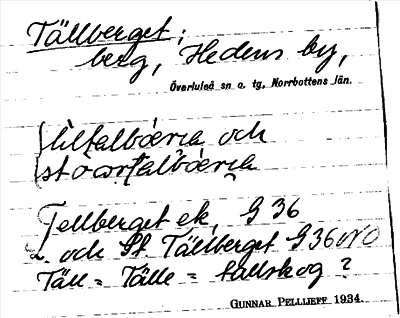 Tällberget;
berg, Hedens by,
Överluleå sn o. tg, Norrbottens län.
och
Tellberget ek. G 36
L. och St. Tällberget G36NO
Täll = Tälle = tallskog?
GUNNAR PELLIJEFF 1934.